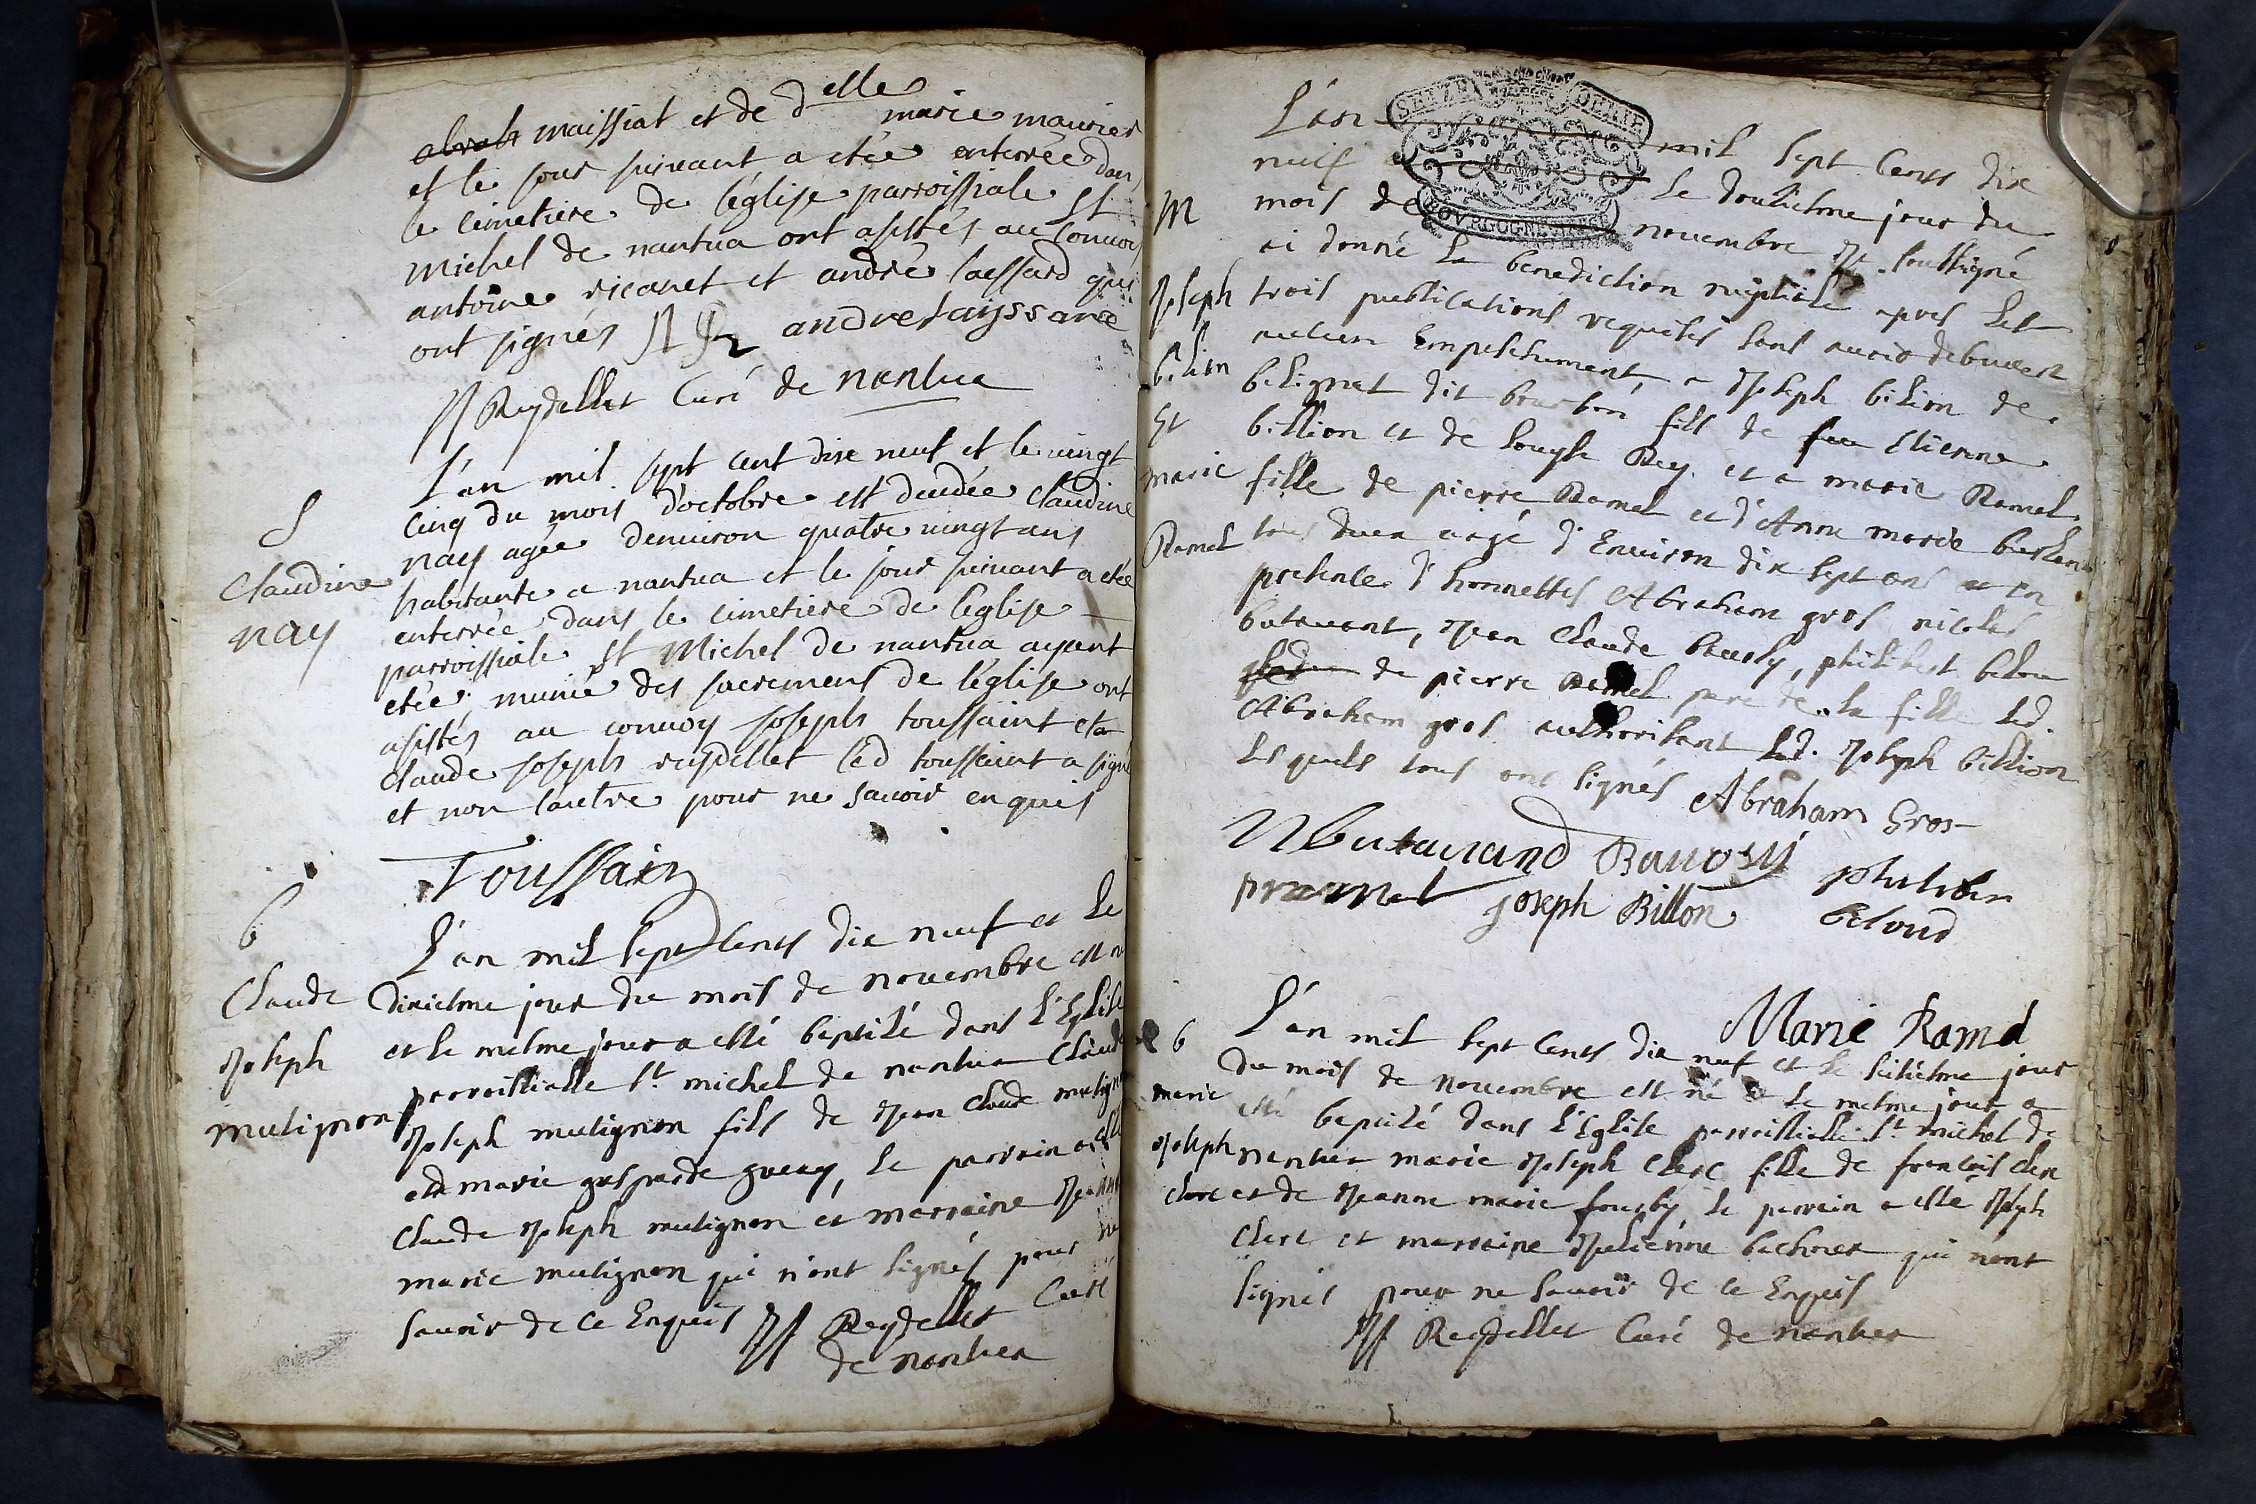 abrah maissiat et de d^elle marie maurier
et le jour suivant a etée enterrée dans
le cimetiere de l'église parroissiale St
Michel de nantua ont assistés au convoi
antoine ricanet et andré laissard qui
ont signés andre laissard
JJ Reydellet Curé de nantua
S
Claudine
nay
L'an mil sept cent dix neuf et le vingt
cinq du mois d'octobre est decedée Claudine
nay agée denviron quatre vingt ans
habitante a nantua et le jour suivant a etée
enterrée dans le cimetiere de l'eglise
parroissiale St Michel de nantua ayant
etée munie des sacremens de l'église ont
assistés au convoy joseph toussaint et
Claude joseph reydellet led toussaint a signé
et non lautre pour ne savoir enquis
Toussain
b
Claude
Joseph
mutignon
L'an mil sept cents dix neuf et le
dixiesme jour du mois de novembre est né
et le mesme jour a esté baptisé dans l'Eglise
parroissialle St. michel de nantua Claude
Joseph mutignon fils de Jean Claude mutignon
et marie gasparde le parrain a esté
Claude Joseph mutignon et marraine Jeanne
marie mutignon qui n'ont signés pour ne
savoir de ce Enquis JJ Reydellet Curé
de nantua
M
Joseph
bilion
Et
marie
Ramel
L'an mil sept cents dix
neuf et le douziesme jour du
mois de novembre Je soussigné
ai donné la benediction nuptiale apres les
trois publications requises sans avoir debuvert
aucun Empeschement, a Joseph bilion de
belignat dit bourbon fils de feu Etienne
billion et de Rey et a marie Ramel
fille de pierre Ramel et d'Anne marie
tous deux aagé d'Environ dix sept ans et en
presence d'honnettes Abraham gros nicolas
butavant, Jean Claude bauosy, philibert belou
de pierre Ramel pere de la fille led.
Abraham gros authorisant led. Joseph billion
Lesquels tous ont signés Abraham Gros
N butavand Bauosy philiber
p ramel joseph Billon beloud
Marie Ramel
b
marie
Joseph
clerc
L'an mil sept cents dix neuf et le seiziesme jour
du mois de novembre est né et le mesme jour a
esté baptisé dans l'Eglise parroissialle St. michel de
nantua marie Joseph Clerc fille de francois clerc
et de Jeanne marie le parrain a esté Joseph
Clerc et marraine Julienne qui n'ont
signés pour ne savoir de ce Enquis
JJ Reydellet Curé de nantua